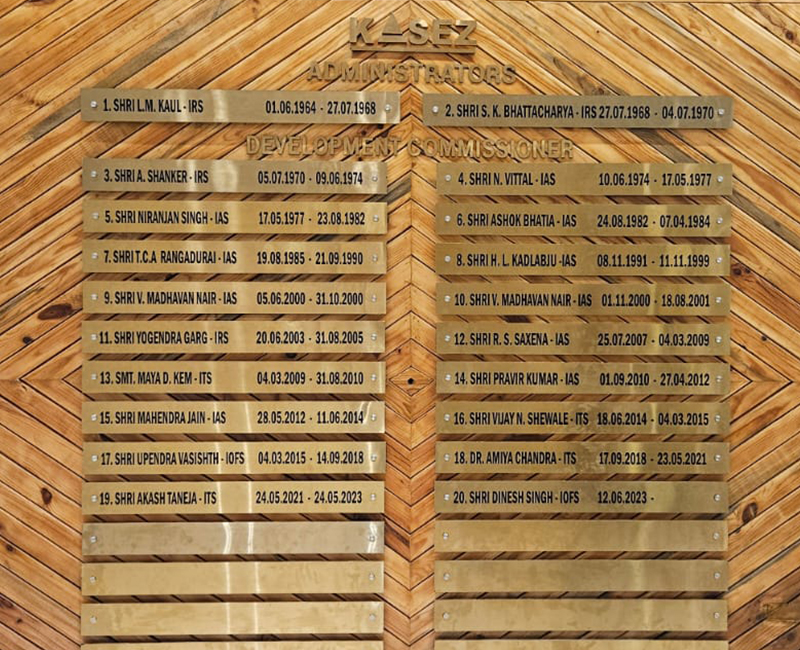 KASEZ
ADMINISTRATORS
1. SHRI L.M. KAUL - IRS 01.06.1964 - 27.07.1968
2. SHRI S. K. BHATTACHARYA - IRS 27.07.1968 - 04.07.1970
DEVELOPMENT COMMISSIONER
3. SHRI A. SHANKER - IRS 05.07.1970 - 09.06.1974
4. SHRI N. VITTAL - IAS 10.06.1974 - 17.05.1977
5. SHRI NIRANJAN SINGH - IAS 17.05.1977 - 23.08.1982
6. SHRI ASHOK BHATIA - IAS 24.08.1982 - 07.04.1984
7. SHRI T.C.A RANGADURAI - IAS 19.08.1985 - 21.09.1990
8. SHRI H. L. KADLABJU -IAS 08.11.1991 - 11.11.1999
9. SHRI V. MADHAVAN NAIR - IAS 05.06.2000 - 31.10.2000
10. SHRI V. MADHAVAN NAIR - IAS 01.11.2000 - 18.08.2001
11. SHRI YOGENDRA GARG - IRS 20.06.2003 - 31.08.2005
12. SHRI R. S. SAXENA - IAS 25.07.2007 - 04.03.2009
13. SMT. MAYA D. KEM - ITS 04.03.2009 - 31.08.2010
14. SHRI PRAVIR KUMAR - IAS 01.09.2010 - 27.04.2012
15. SHRI MAHENDRA JAIN - IAS 28.05.2012 - 11.06.2014
16. SHRI VIJAY N. SHEWALE - ITS 18.06.2014 - 04.03.2015
17. SHRI UPENDRA VASISHTH - IOFS 04.03.2015 - 14.09.2018
18. DR. AMIYA CHANDRA - ITS 17.09.2018 - 23.05.2021
19. SHRI AKASH TANEJA - ITS 24.05.2021 - 24.05.2023
20. SHRI DINESH SINGH - IOFS 12.06.2023 -